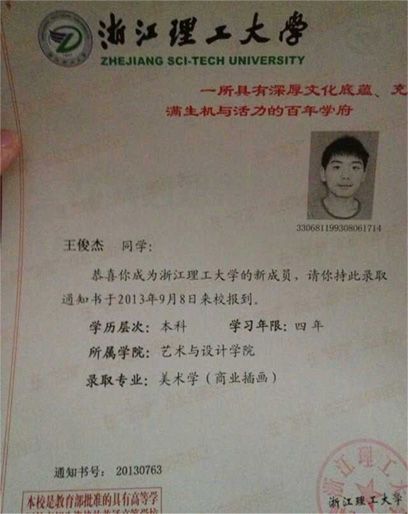 浙江理工大学
ZHEJIANG SCI-TECH UNIVERSITY
一所具有深厚文化底蕴、充
满生机与活力的百年学府
330681199308061714
王俊杰 同学：
恭喜你成为浙江理工大学的新成员，请你持此录取
通知书于2013年9月8日来校报到。
学历层次：本科 学习年限：四年
所属学院：艺术与设计学院
录取专业：美术学（商业插画）
通知书号：20130763
本校是教育部批准的具有高等学
浙江理工大学